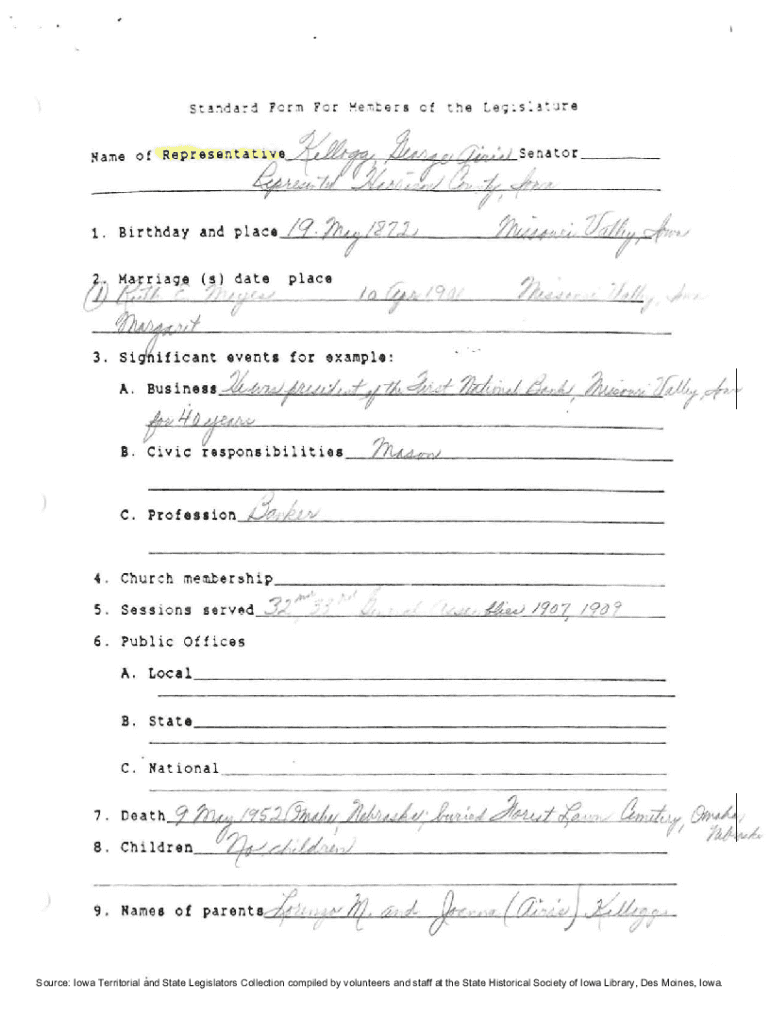 Standard Form For Members of the Legislature
Name of Representative Kellogg, George Airis Senator
Represented Harrison County, Iowa
1. Birthday and place 19 May 1872 Missouri Valley, Iowa
2. Marriage (s) date place
(1) Ruth E. 10 Apr 1901 Missouri Valley, Iowa
Margaret
3. Significant events for example:
A. Business He was president of the First National Bank, Missouri Valley, Iowa
for 40 years
B. Civic responsibilities Mason
C. Profession Banker
4. Church membership
5. Sessions served 32nd, 33rd General Assemblies 1907, 1909
6. Public Offices
A. Local
B. State
C. National
7. Death 9 May 1952 Omaha, Nebraska; buried Forest Lawn Cemetery, Omaha,
Nebraska
8. Children No children
9. Names of parents Lorenzo M. and Joanna (Airis) Kellogg
Source: Iowa Territorial and State Legislators Collection compiled by volunteers and staff at the State Historical Society of Iowa Library, Des Moines, Iowa.